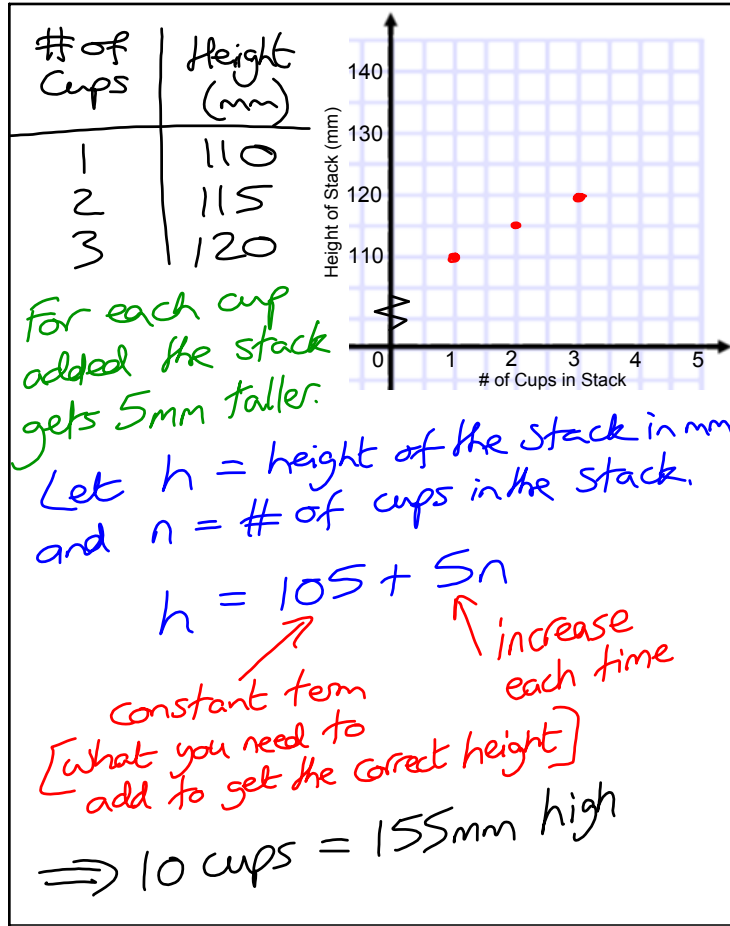 # of Cups
Height (mm)
1 110
2 115
3 120
140
130
120
110
Height of Stack (mm)
0 1 2 3 4 5
# of Cups in Stack
For each cup
added the stack
gets 5mm taller.
Let h = height of the stack in mm
and n = # of cups in the stack.
h = 105 + 5n
increase
each time
constant term
[what you need to
add to get the correct height]
⟹ 10 cups = 155mm high